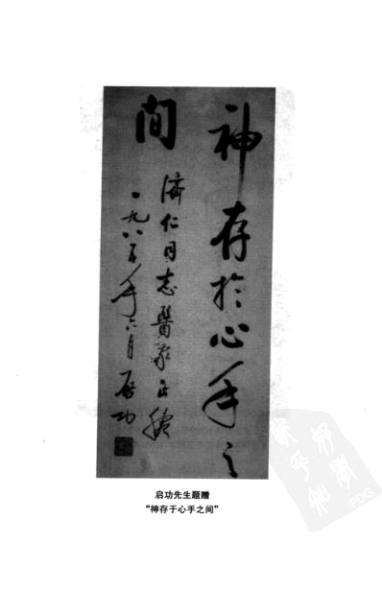 神存於心手之
間
濟仁同志醫家正腕
一九八五年六月 启功
启功先生题赠
“神存于心手之间”